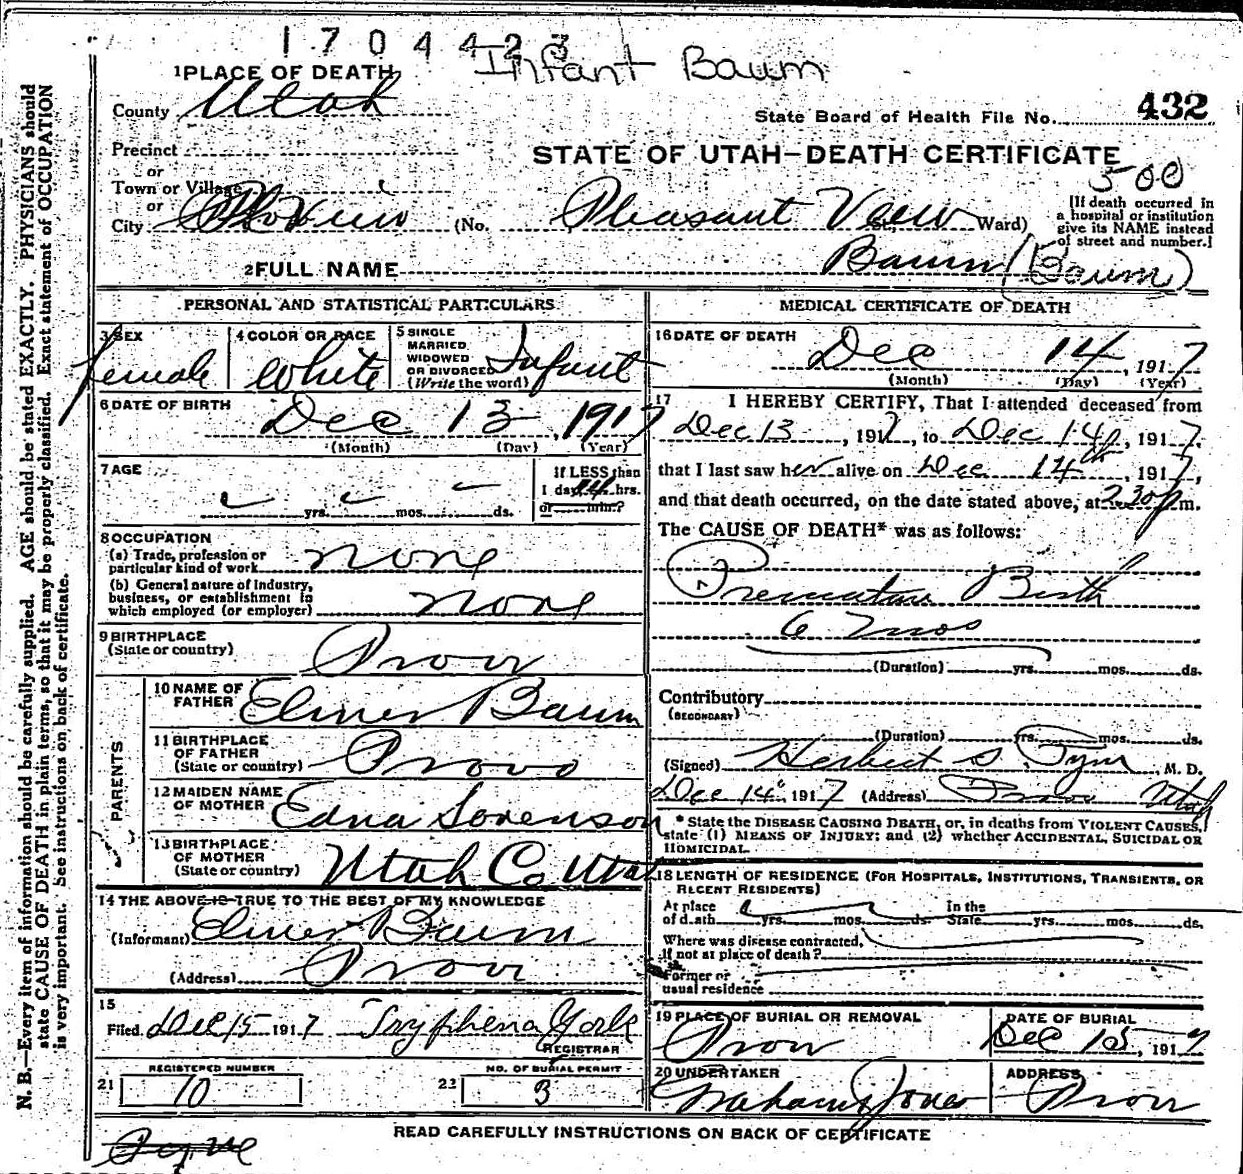 1 7 0 4 4 2 3
Infant Baum
1 PLACE OF DEATH
County Utah
State Board of Health File No. 432
Precinct
STATE OF UTAH—DEATH CERTIFICATE
or
500
Town or Village
or
City (No. Pleasant View St., Ward)
[If death occurred in a hospital or institution give its NAME instead of street and number.]
2 FULL NAME Baum (Baum)
PERSONAL AND STATISTICAL PARTICULARS
3 SEX
female
4 COLOR OR RACE
White
5 SINGLE
MARRIED
WIDOWED
OR DIVORCED
(Write the word)
Infant
6 DATE OF BIRTH
Dec 13, 1917
(Month) (Day) (Year)
7 AGE
yrs. mos. ds.
If LESS than
1 day, 24 hrs.
or min.?
8 OCCUPATION
(a) Trade, profession or
particular kind of work none
(b) General nature of industry,
business, or establishment in
which employed (or employer) none
9 BIRTHPLACE
(State or country) Provo
PARENTS
10 NAME OF
FATHER Elmer Baum
11 BIRTHPLACE
OF FATHER
(State or country) Provo
12 MAIDEN NAME
OF MOTHER Edna Sorenson
13 BIRTHPLACE
OF MOTHER
(State or country) Utah Co Utah
14 THE ABOVE IS TRUE TO THE BEST OF MY KNOWLEDGE
(Informant) Elmer Baum
(Address) Provo
15
Filed Dec 15 1917 Tryphena York
REGISTRAR
REGISTERED NUMBER
21 10
NO. OF BURIAL PERMIT
22 3
MEDICAL CERTIFICATE OF DEATH
16 DATE OF DEATH
Dec 14, 1917
(Month) (Day) (Year)
17 I HEREBY CERTIFY, That I attended deceased from
Dec 13, 1917, to Dec 14th, 1917,
that I last saw her alive on Dec 14th, 1917,
and that death occurred, on the date stated above, at 2.30 p.m.
The CAUSE OF DEATH* was as follows:
Premature Birth
6 mos
(Duration) yrs. mos. ds.
Contributory
(SECONDARY)
(Duration) yrs. mos. ds.
(Signed) Herbert S. Pyne, M. D.
Dec 14, 1917 (Address) Provo Utah
* State the DISEASE CAUSING DEATH, or, in deaths from VIOLENT CAUSES,
state (1) MEANS OF INJURY; and (2) whether ACCIDENTAL, SUICIDAL OR
HOMICIDAL.
18 LENGTH OF RESIDENCE (FOR HOSPITALS, INSTITUTIONS, TRANSIENTS, OR
RECENT RESIDENTS)
At place
of death yrs. mos. ds.
In the
State yrs. mos. ds.
Where was disease contracted,
If not at place of death?
Former or
usual residence
19 PLACE OF BURIAL OR REMOVAL
Provo
DATE OF BURIAL
Dec 15, 1917
20 UNDERTAKER
Jones
ADDRESS
Provo
READ CAREFULLY INSTRUCTIONS ON BACK OF CERTIFICATE
N. B.—Every item of information should be carefully supplied. AGE should be stated EXACTLY. PHYSICIANS should
state CAUSE OF DEATH in plain terms, so that it may be properly classified. Exact statement of OCCUPATION
is very important. See instructions on back of certificate.